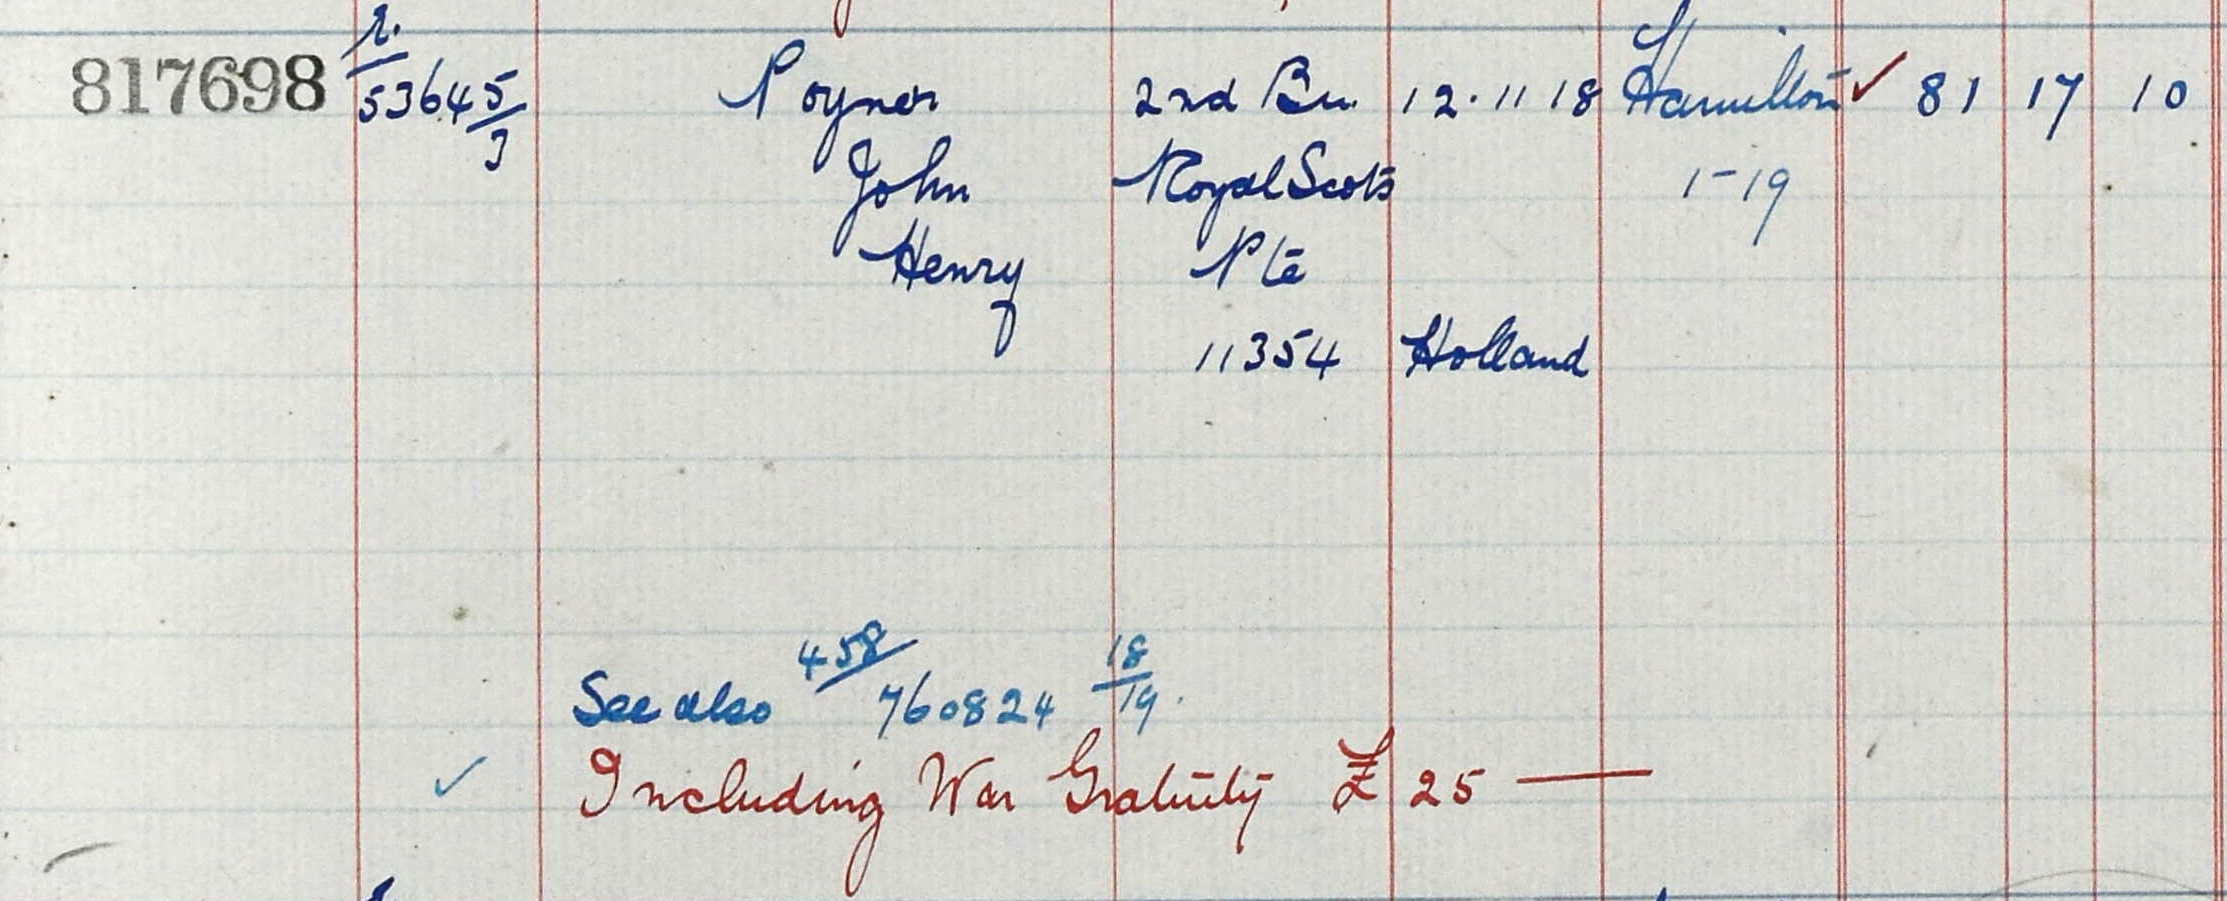 r.
817698 53645/3 Poyner 2nd Bn. 12.11 18 Hamilton ✓ 81 17 10
John Royal Scots 1-19
Henry Pte
11354 Holland
See also 458/ 760824 18/19.
✓ Including War Gratuity £ 25 —